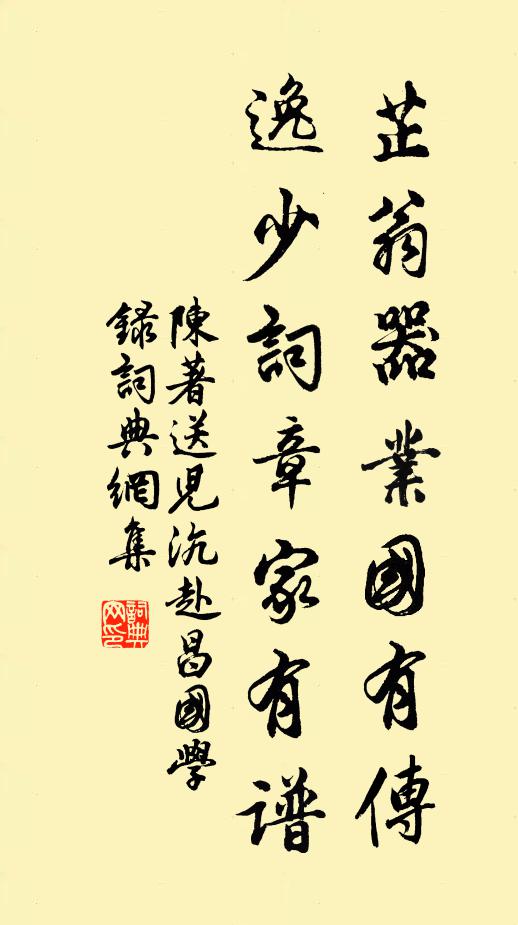 芷翁器業國有傳
逸少詞章家有谱
陳著送児沆赴昌國學
録詞典網集
詞典网印